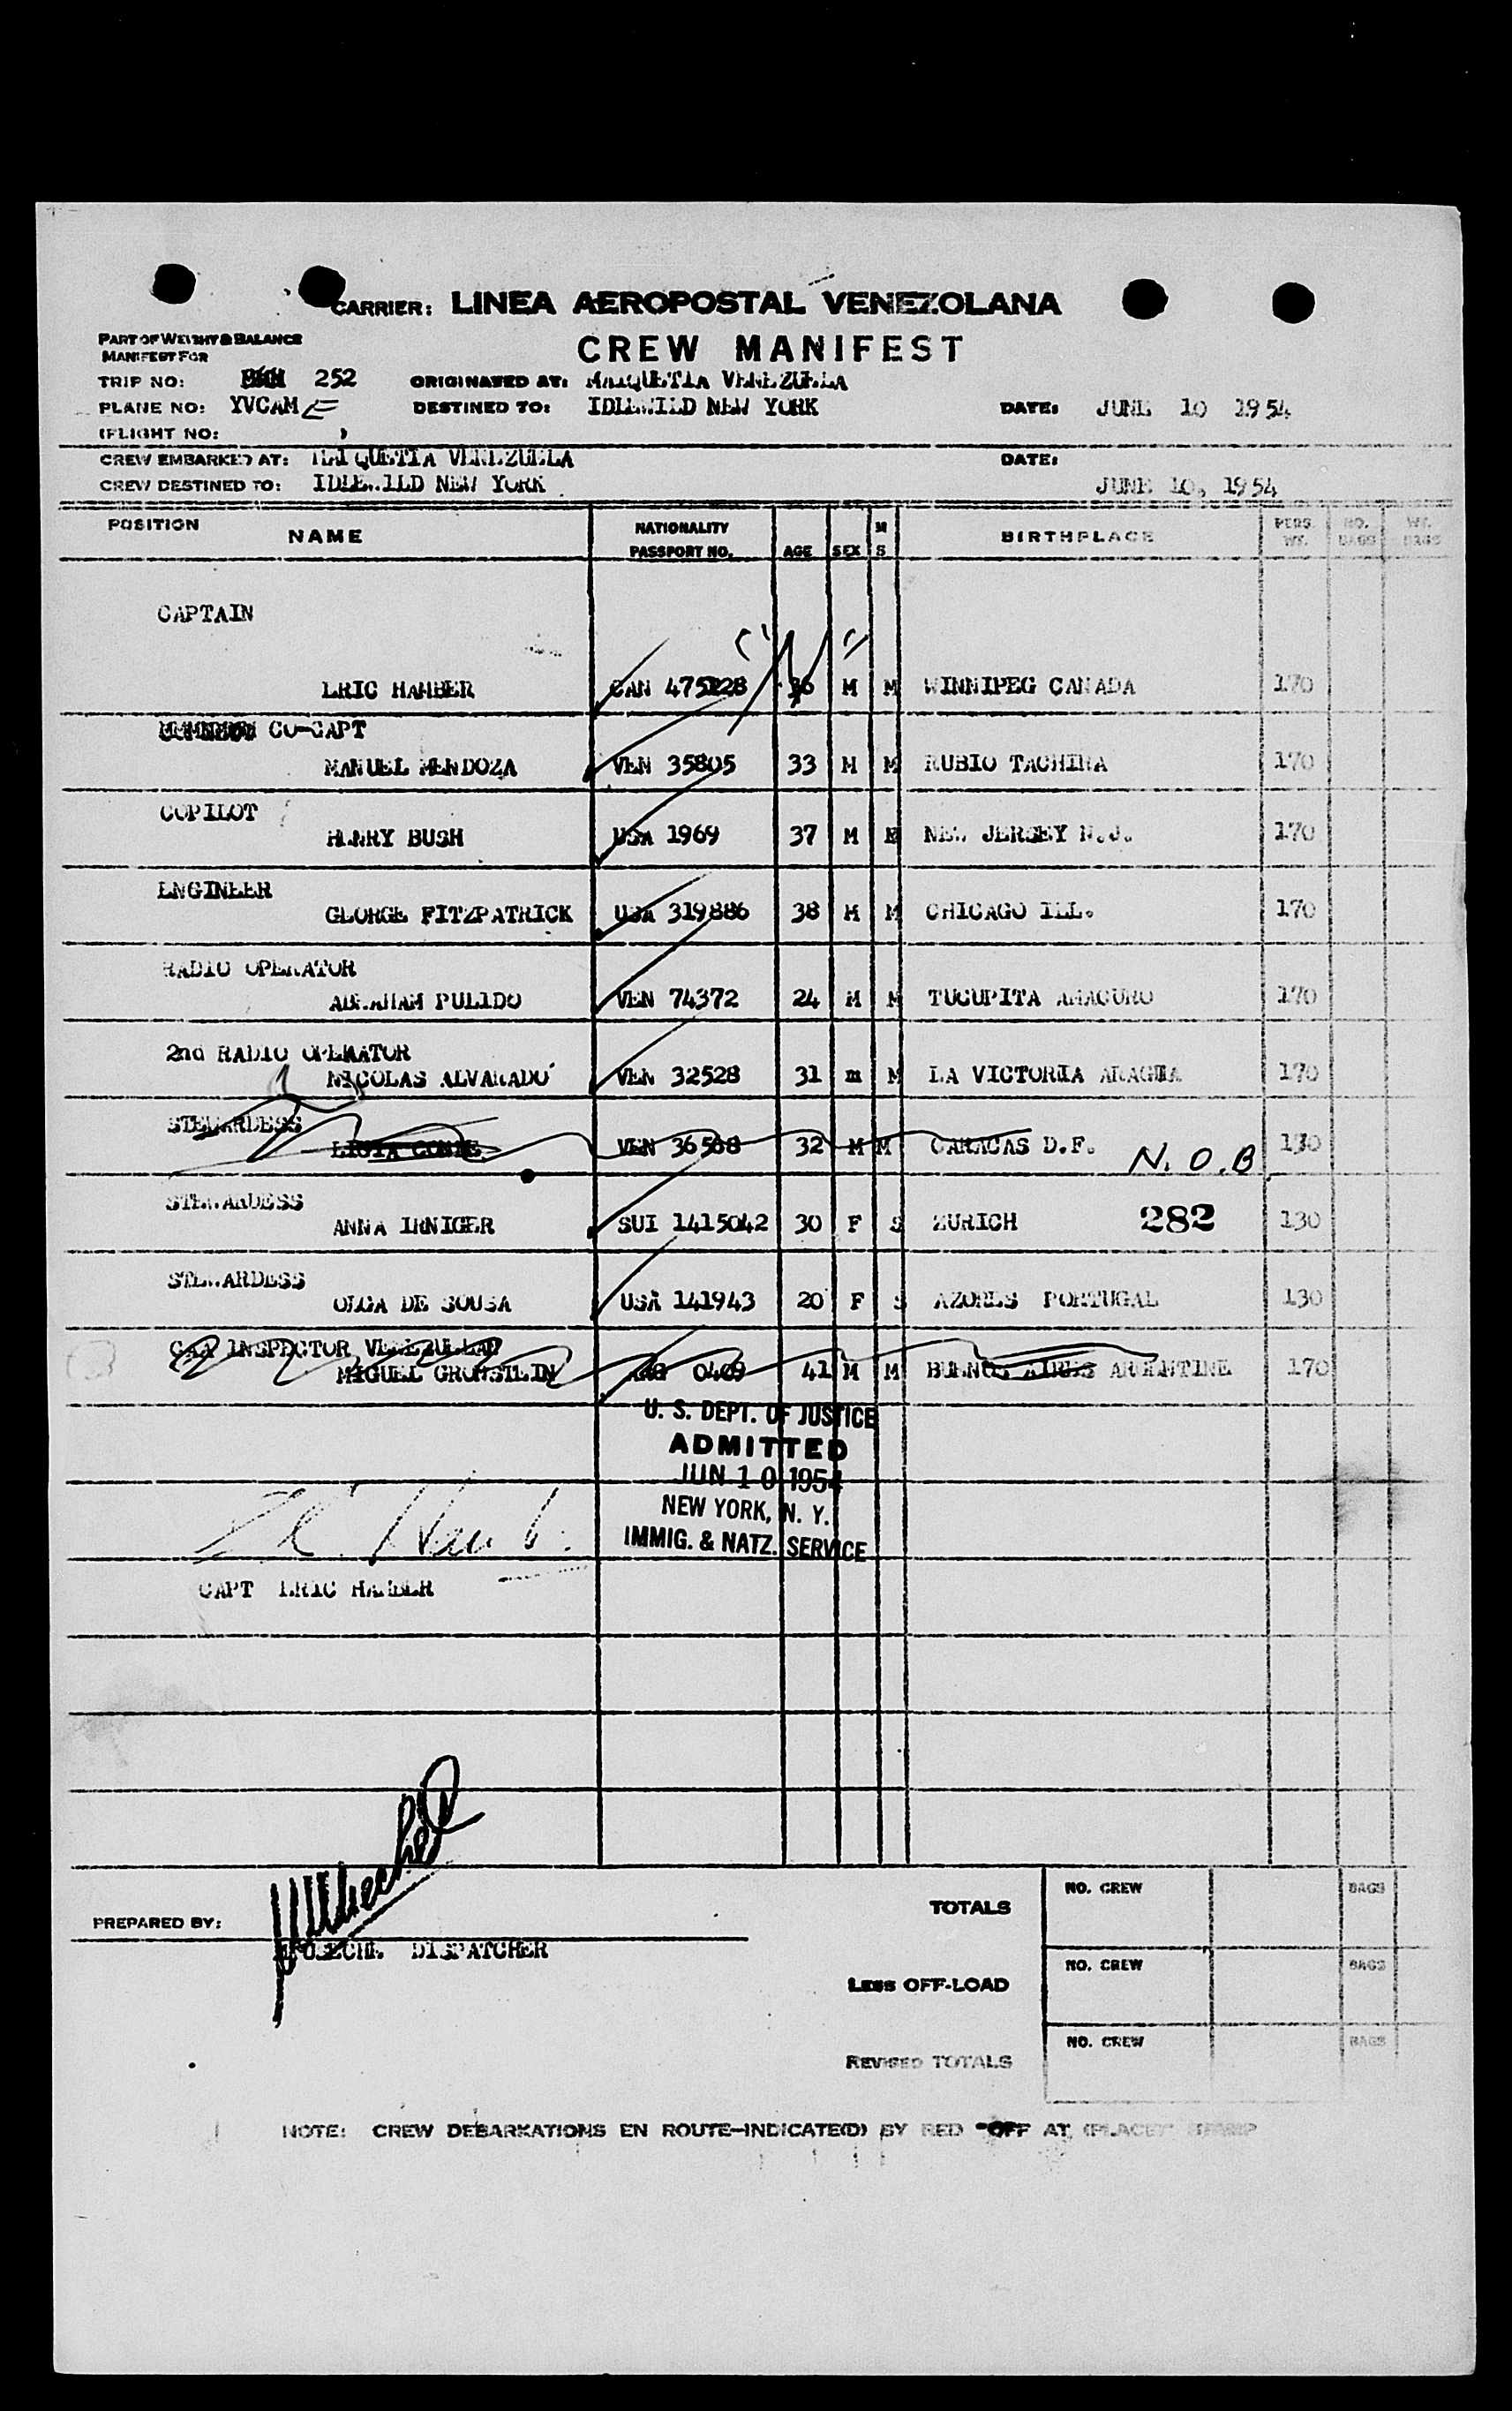 CARRIER: LINEA AEROPOSTAL VENEZOLANA
PART OF WEIGHT & BALANCE
MANIFEST FOR
CREW MANIFEST
TRIP NO: 252 ORIGINATED AT: MAIQUETIA VENEZUELA
PLANE NO: YVCAME DESTINED TO: IDLEWILD NEW YORK DATE: JUNE 10 1954
(FLIGHT NO: )
CREW EMBARKED AT: MAIQUETIA VENEZUELA DATE:
CREW DESTINED TO: IDLEWILD NEW YORK JUNE 10, 1954
POSITION NAME NATIONALITY PASSPORT NO. AGE SEX M S BIRTHPLACE PERS. WT. NO. BAGS WT. BAGS
CAPTAIN
ERIC HAMBER CAN 36 M M WINNIPEG CANADA 170
CO-CAPT
MANUEL MENDOZA VEN 35805 33 M M RUBIO TACHIRA 170
COPILOT
HENRY BUSH USA 1969 37 M NEW JERSEY N.J. 170
ENGINEER
GEORGE FITZPATRICK USA 319886 38 M M CHICAGO ILL. 170
RADIO OPERATOR
ABRAHAM PULIDO VEN 74372 24 M M TUCUPITA AMACURO 170
2nd RADIO OPERATOR
NICOLAS ALVARADO VEN 32528 31 m M LA VICTORIA ARAGUA 170
STEWARDESS
LIGIA CONDE VEN 36568 32 M M CARACAS D.F. N.O.B 130
STEWARDESS
ANNA IRNIGER SUI 1415042 30 F S ZURICH 282 130
STEWARDESS
OLGA DE SOUSA USA 141943 20 F S AZORES PORTUGAL 130
CAA INSPECTOR VENEZUELAN
MIGUEL ARG 0409 41 M M BUENOS AIRES ARGENTINE 170
U. S. DEPT. OF JUSTICE
ADMITTED
JUN 10 1954
NEW YORK, N. Y.
IMMIG. & NATZ. SERVICE
CAPT ERIC HAMBER
PREPARED BY:
DISPATCHER
TOTALS NO. CREW BAGS
LESS OFF-LOAD NO. CREW BAGS
REVISED TOTALS NO. CREW BAGS
NOTE: CREW DEBARKATIONS EN ROUTE-INDICATE(D) BY RED "OFF AT (PLACE)" STAMP